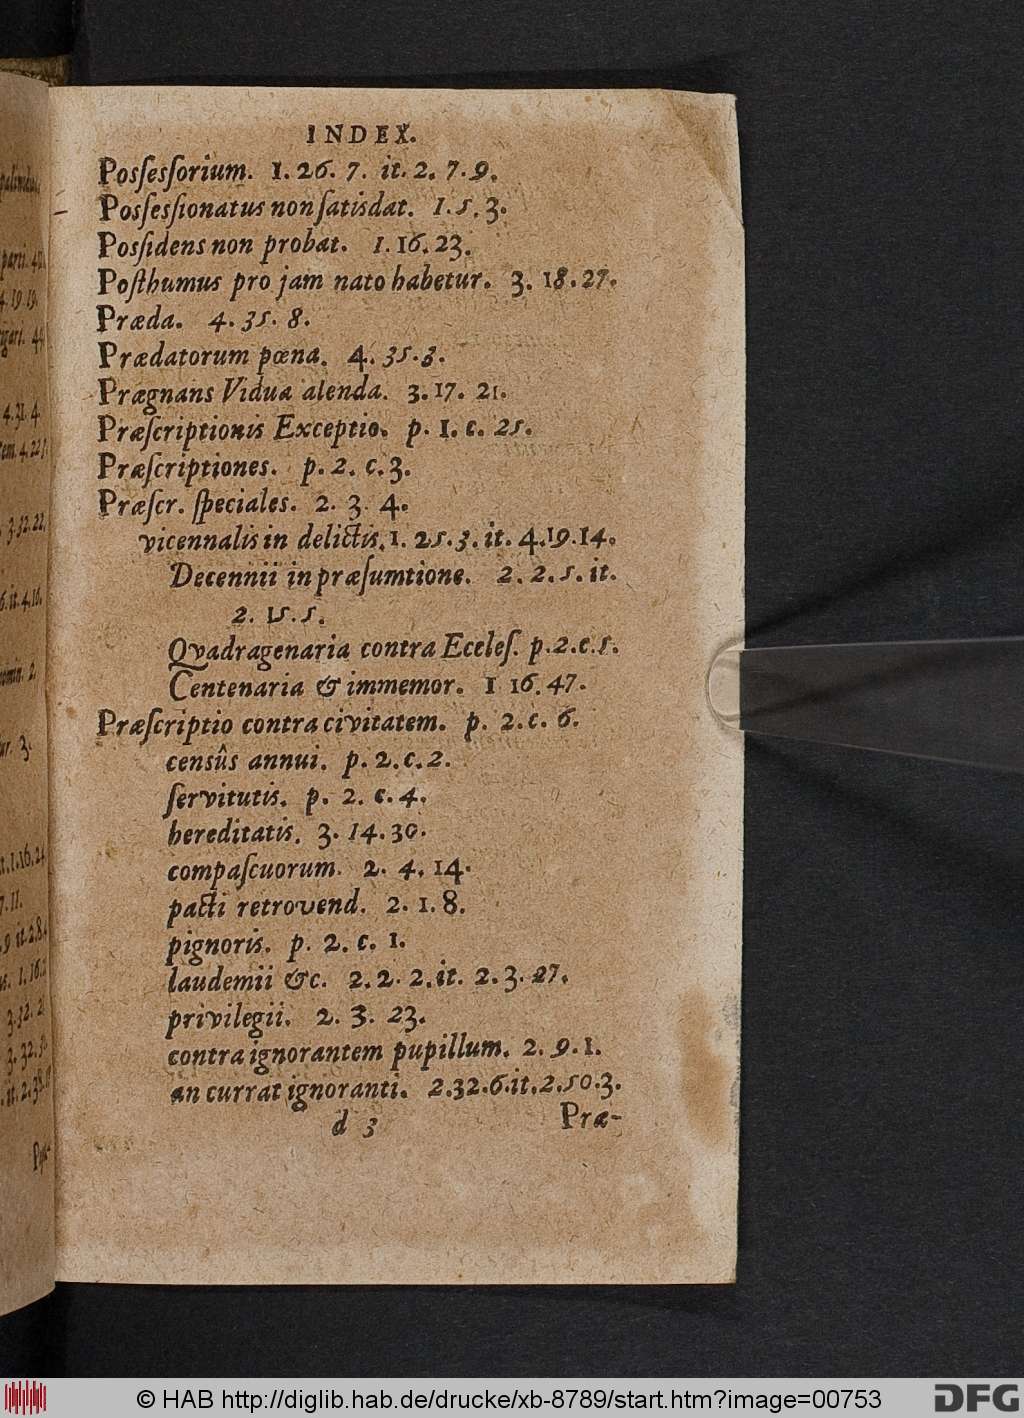 INDEX.
Posſesſorium. 1. 26. 7. it. 2. 7. 9.
Posſesſionatus non ſatisdat. 1. 5. 3.
Posſidens non probat. 1. 16. 23.
Poſthumus pro jam nato habetur. 3. 18. 27.
Præda. 4. 35. 8.
Prædatorum pœna. 4. 35. 3.
Prægnans Vidua alenda. 3. 17. 21.
Præſcriptionis Exceptio. p. 1. c. 25.
Præſcriptiones. p. 2. c. 3.
Præſcr. ſpeciales. 2. 3. 4.
vicennalis in delictis. 1. 25. 3. it. 4. 19. 14.
Decennii in præſumtione. 2. 2. 5. it.
2. 15. 5.
Qvadragenaria contra Eccleſ. p. 2. c. 5.
Centenaria & immemor. 1 16. 47.
Præſcriptio contra civitatem. p. 2. c. 6.
censûs annui. p. 2. c. 2.
ſervitutis. p. 2. c. 4.
hereditatis. 3. 14. 30.
compaſcuorum. 2. 4. 14.
pacti retrovend. 2. 1. 8.
pignoris. p. 2. c. 1.
laudemii &c. 2. 2. 2. it. 2. 3. 27.
privilegii. 2. 3. 23.
contra ignorantem pupillum. 2. 9. 1.
an currat ignoranti. 2. 32. 6. it. 2. 50. 3.
d 3 Præ-
© HAB http://diglib.hab.de/drucke/xb-8789/start.htm?image=00753
DFG